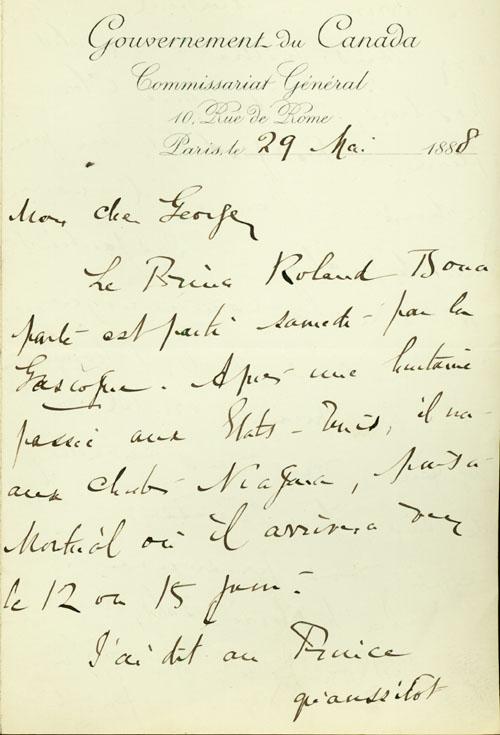 Gouvernement du Canada
Commissariat Général
10, Rue de Rome
Paris, le 29 Mai 1888
Mon cher Georges
Le Prince Roland Bona
parte est parti samedi par la
Gascogne. Après une huitaine
passée aux Etats-Unis, il ira
aux chutes Niagara, puis à
Montréal où il arrivera vers
le 12 ou 15 juin.
J'ai dit au Prince
qu'aussitôt